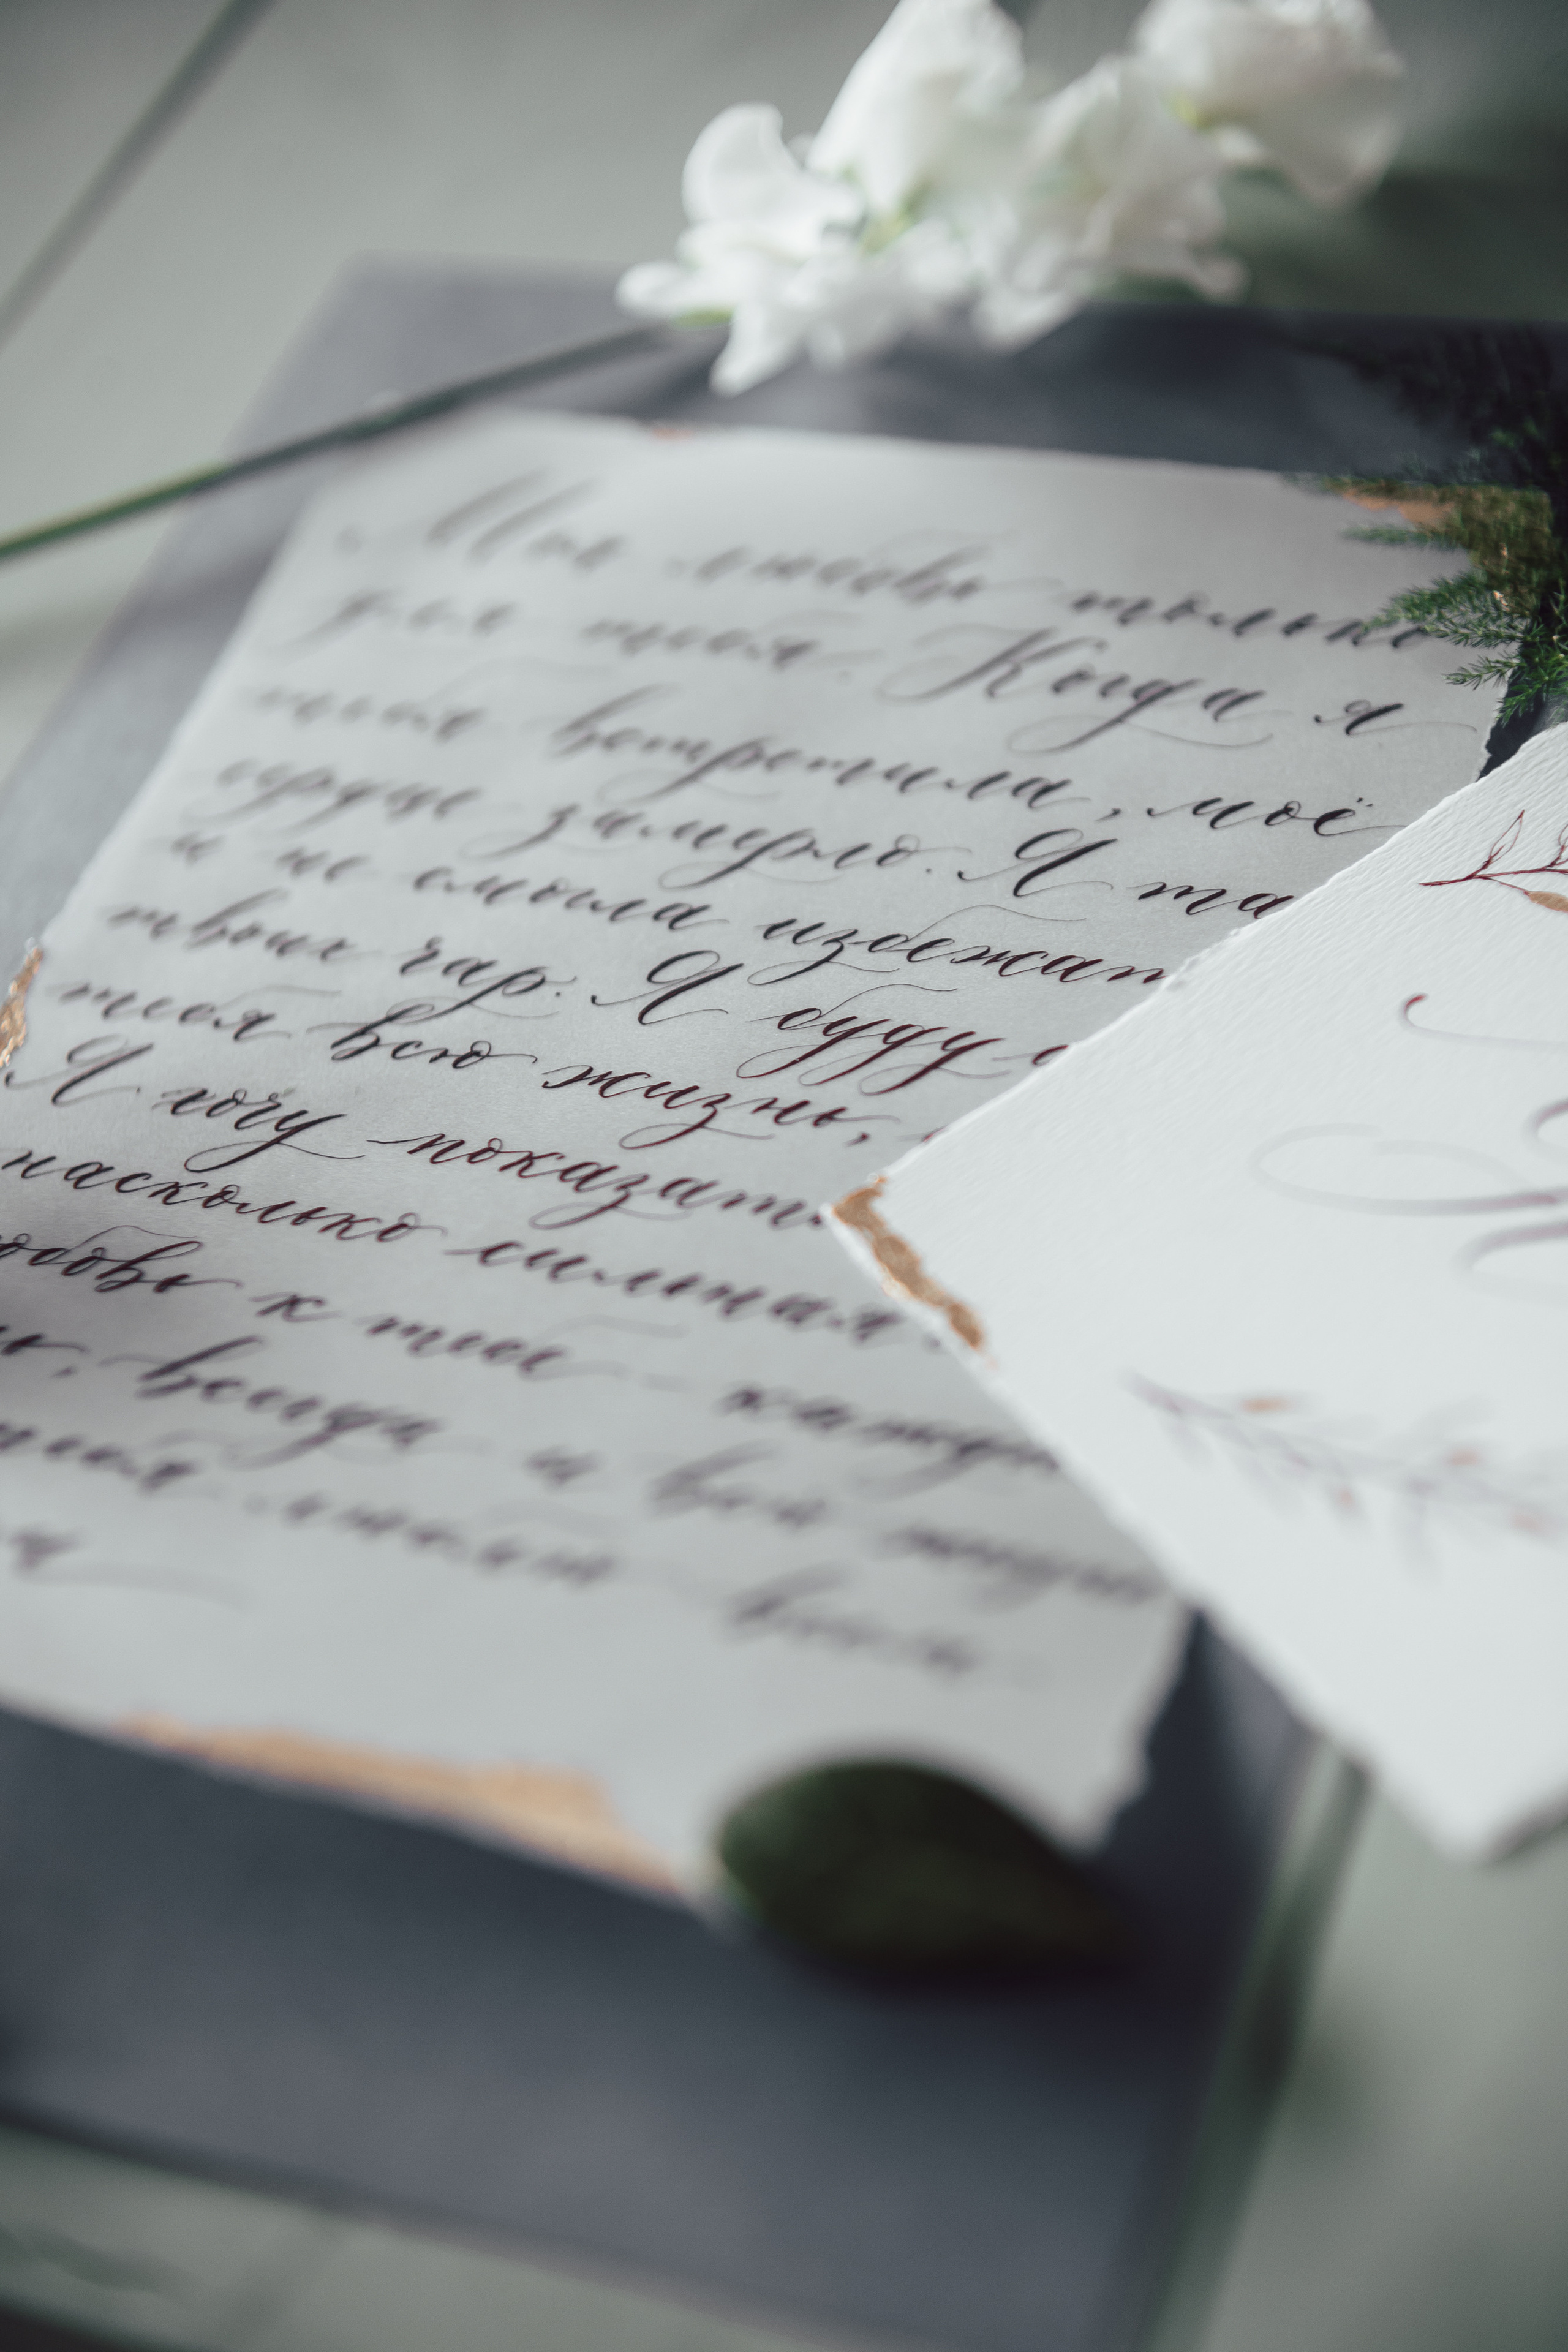 Моя любовь только
для тебя. Когда я
тебя встретила, моё
сердце замерло. Я та
и не смогла избежат
твоих чар. Я буду
тебя всю жизнь,
Я хочу показат
насколько сильная
юбовь к тебе -
всегда и
тебя